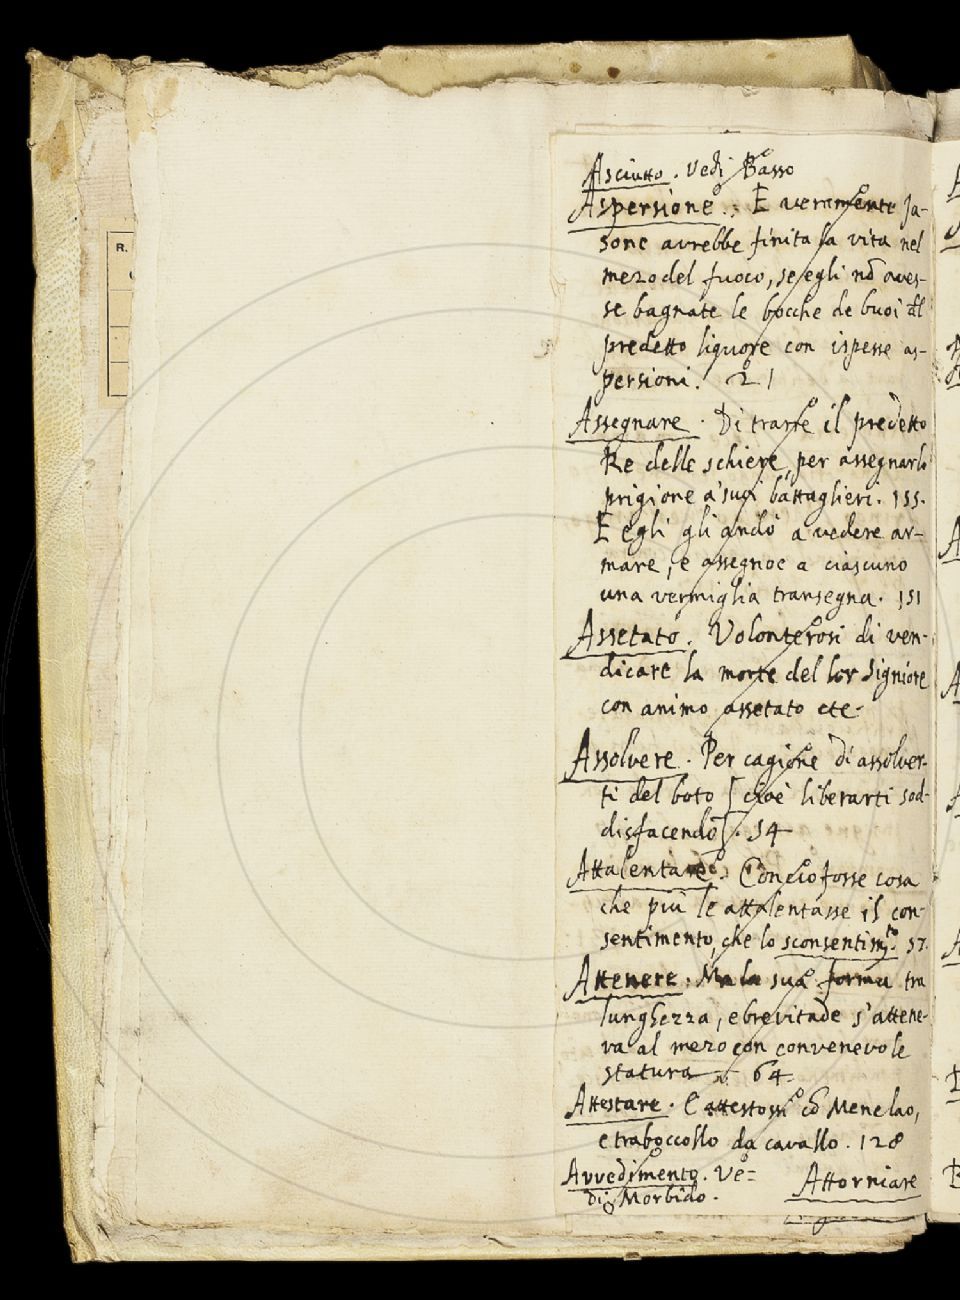 Asciutto. Vedi Basso
Aspersione. E veramente Ja-
sone avrebbe finita la vita nel
mezo del fuoco, se egli nō aves-
se bagnate le bocche de buoi dl
predetto liquore con ispesse as-
persioni. 21
Assegnare. Di trarre il predetto
Re delle schiere, per assegnarlo
prigione a' suoi battaglieri. 155.
E egli gli andò a vedere ar-
mare, e assegnoe a ciascuno
una vermiglia transegna. 151
Assetato. Volonterosi di ven-
dicare la morte del lor Signiore
con animo assetato etc.
Assolvere. Per cagione di assolver-
ti del boto [cioè liberarti sod-
disfacendo]. 54
Attalentare. Conciofosse cosa
che più le attalentasse il con-
sentimento, che lo sconsentim.to 57.
Attenere. Ma la sua forma tra
lunghezza, e brevitade s'attene-
va al mezo con convenevole
statura 64.
Attestare. E attestossi cō Menelao,
e traboccollo da cavallo. 128
Avvedimento. Ve=
di Morbido.
Attorniare
R.